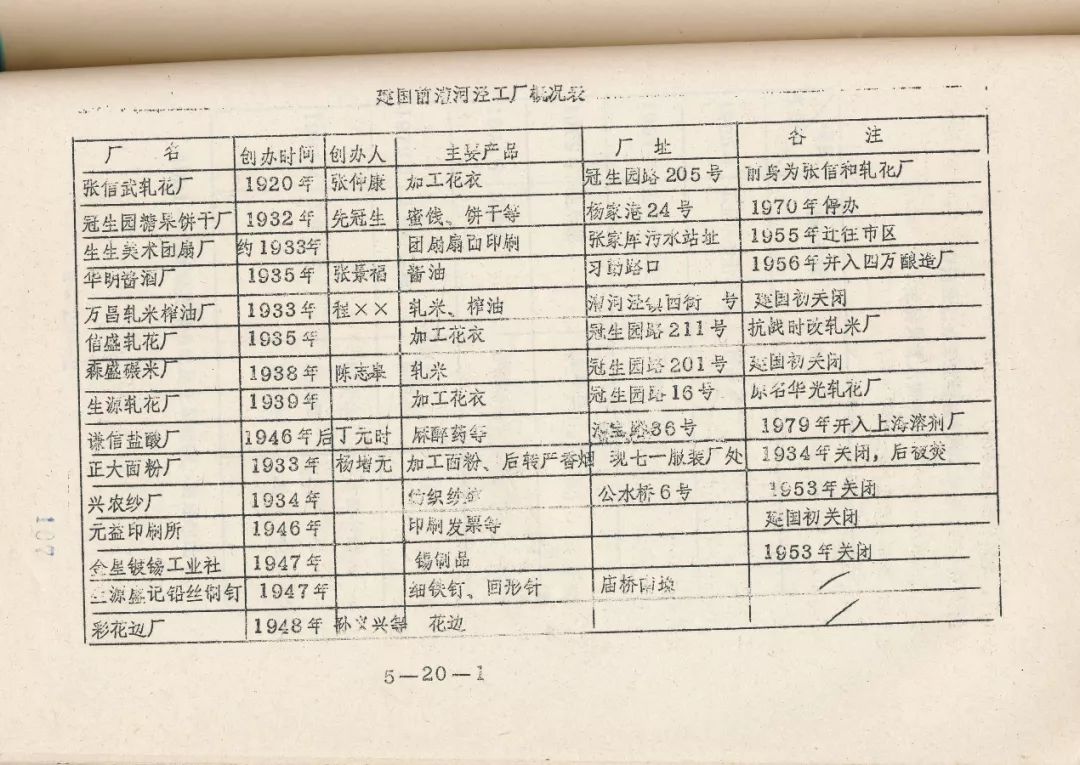 建国前漕河泾工厂概况表
厂 名 创办时间 创办人 主要产品 厂 址 备 注
张信武轧花厂 1920年 张仲康 加工花衣 冠生园路205号 前身为张信和轧花厂
冠生园糖果饼干厂 1932年 冼冠生 蜜饯、饼干等 杨家港24号 1970年停办
生生美术团扇厂 约1933年 团扇扇面印刷 张家厍污水站址 1955年迁往市区
华明酱酒厂 1935年 张景福 酱油 习勤路口 1956年并入四万酿造厂
万昌轧米榨油厂 1933年 程×× 轧米、榨油 漕河泾镇西街 号 建国初关闭
信盛轧花厂 1935年 加工花衣 冠生园路211号 抗战时改轧米厂
森盛碾米厂 1938年 陈志皋 轧米 冠生园路201号 建国初关闭
生源轧花厂 1939年 加工花衣 冠生园路16号 原名华光轧花厂
谦信盐酸厂 1946年后 丁元时 麻醉药等 路36号 1979年并入上海溶剂厂
正大面粉厂 1933年 杨增元 加工面粉、后转产香烟 现七一服装厂处 1934年关闭，后被焚
兴农纱厂 1934年 纺织纱 公水桥6号 1953年关闭
元益印刷所 1946年 印刷发票等 建国初关闭
金星镀锡工业社 1947年 锡制品 1953年关闭
生源盛记铅丝制钉 1947年 细铁钉、回形针 庙桥南堍
彩花边厂 1948年 孙义兴等 花边
5—20—1
201